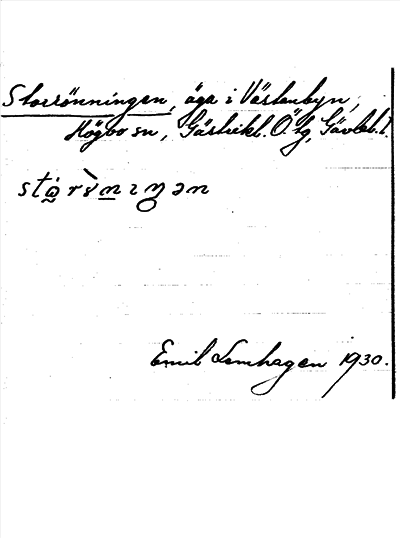 Storrönningen, äga i Västerbyn,
Högbo sn, Gästrikl. Ö. tg, Gävleb. l.
stώ̣rv̀nıŋən
Emil Lemhagen 1930.